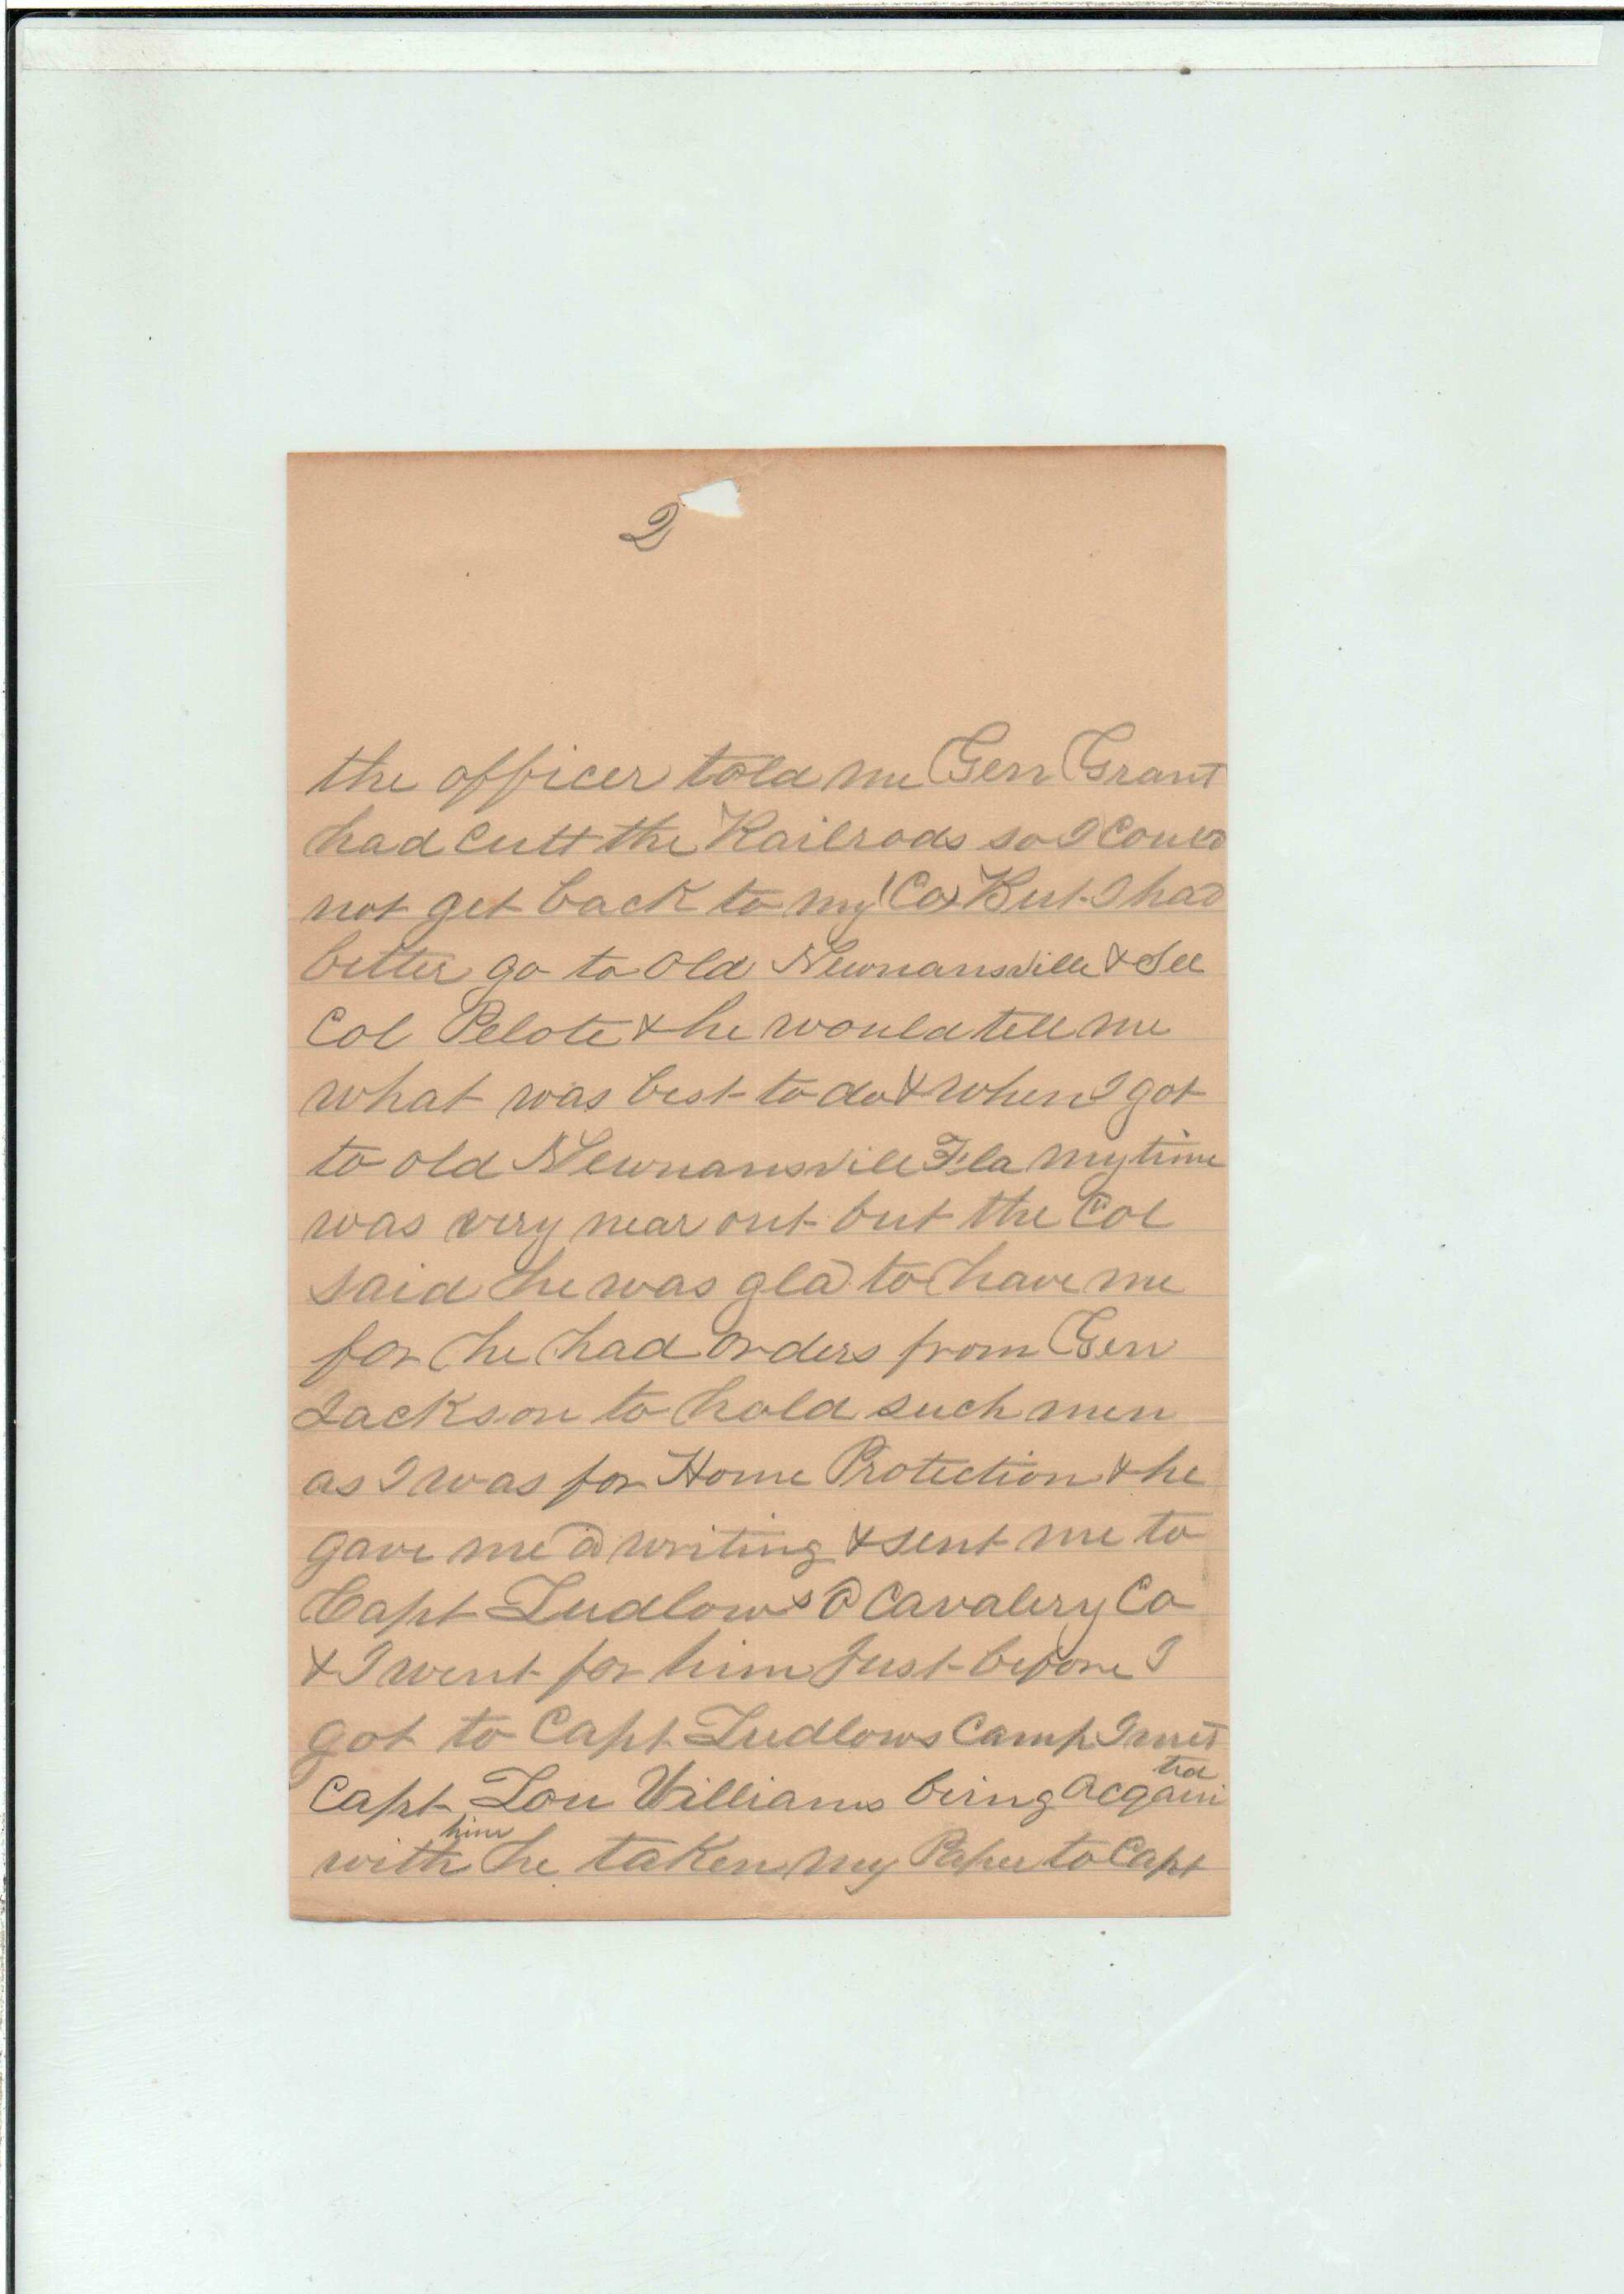 2
the officer told me Gen Grant
had cutt the Railrods so I could
not get back to my (Co) But I had
better go to Old Newnansville & See
Col Pelote & he would tell me
what was best to do & when I got
to old Newnansvile Fla my time
was very near out but the Col
said he was glad to have me
for he had orders from Gen
Jackson to hold such men
as I was for Home Protection & he
gave me a writing & sent me to
Capt Ludlows Cavalery Co
& I went for him Just before I
got to Capt Ludlows Camp I met
Capt Lou Williams being Acqainted
with him he taken my Paper to Capt